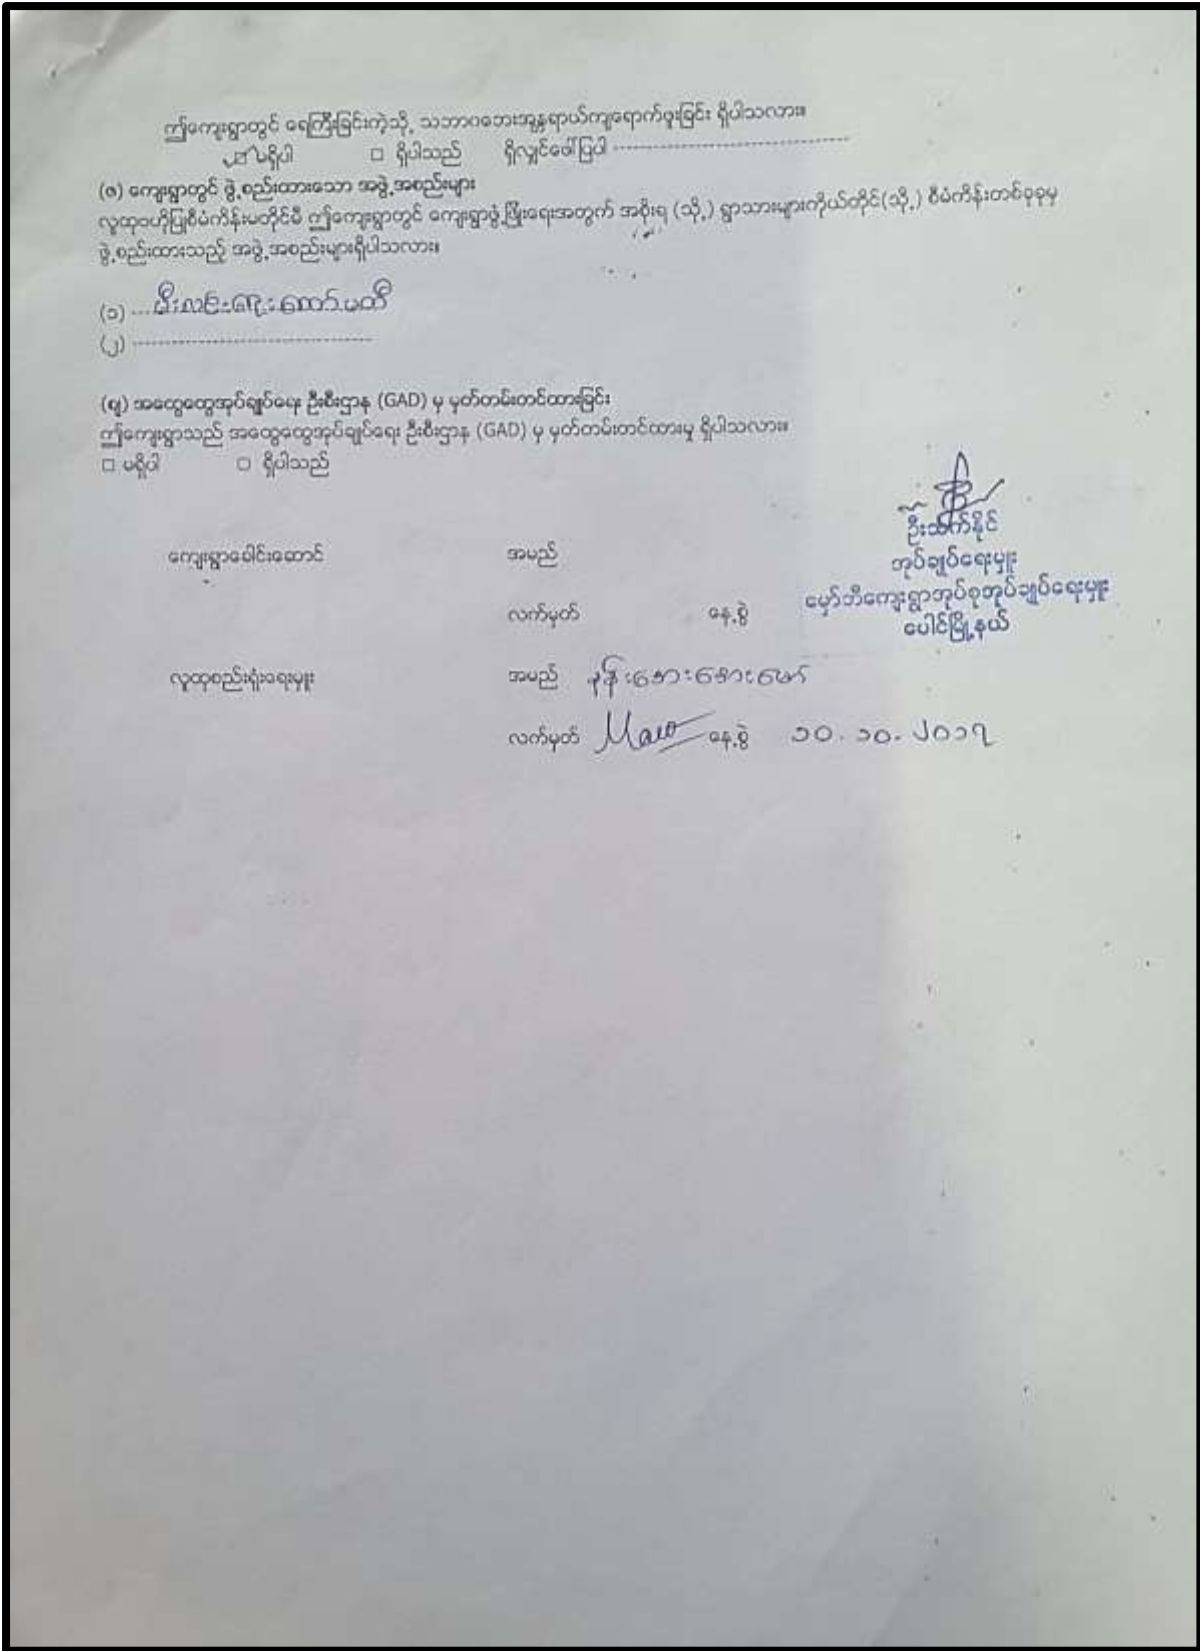 ဤကျေးရွာတွင် ရေကြီးခြင်းကဲ့သို့ သဘာဝဘေးအန္တရာယ်ကျရောက်ဖူးခြင်း ရှိပါသလား။
□ မရှိပါ □ ရှိပါသည် ရှိလျှင်ဖော်ပြပါ
(ဇ) ကျေးရွာတွင် ဖွဲ့စည်းထားသော အဖွဲ့အစည်းများ
လူထုဗဟိုပြုစီမံကိန်းမတိုင်မီ ဤကျေးရွာတွင် ကျေးရွာဖွံ့ဖြိုးရေးအတွက် အစိုးရ (သို့) ရွာသားများကိုယ်တိုင်(သို့) စီမံကိန်းတစ်ခုခုမှ
ဖွဲ့စည်းထားသည့် အဖွဲ့အစည်းများရှိပါသလား။
(၁) မီးလင်းရေးကော်မတီ
(၂)
(ဈ) အထွေထွေအုပ်ချုပ်ရေး ဦးစီးဌာန (GAD) မှ မှတ်တမ်းတင်ထားခြင်း
ဤကျေးရွာသည် အထွေထွေအုပ်ချုပ်ရေး ဦးစီးဌာန (GAD) မှ မှတ်တမ်းတင်ထားမှု ရှိပါသလား။
□ မရှိပါ □ ရှိပါသည်
ဦးထက်နိုင်
ကျေးရွာခေါင်းဆောင် အမည် အုပ်ချုပ်ရေးမှူး
လက်မှတ် နေ့စွဲ မှော်ဘီကျေးရွာအုပ်စုအုပ်ချုပ်ရေးမှူး
ပေါင်မြို့နယ်
လူထုစည်းရုံးရေးမှူး အမည် နန်းအေးအေးမော်
လက်မှတ် Maw နေ့စွဲ ၁၀.၁၀.၂၀၁၇